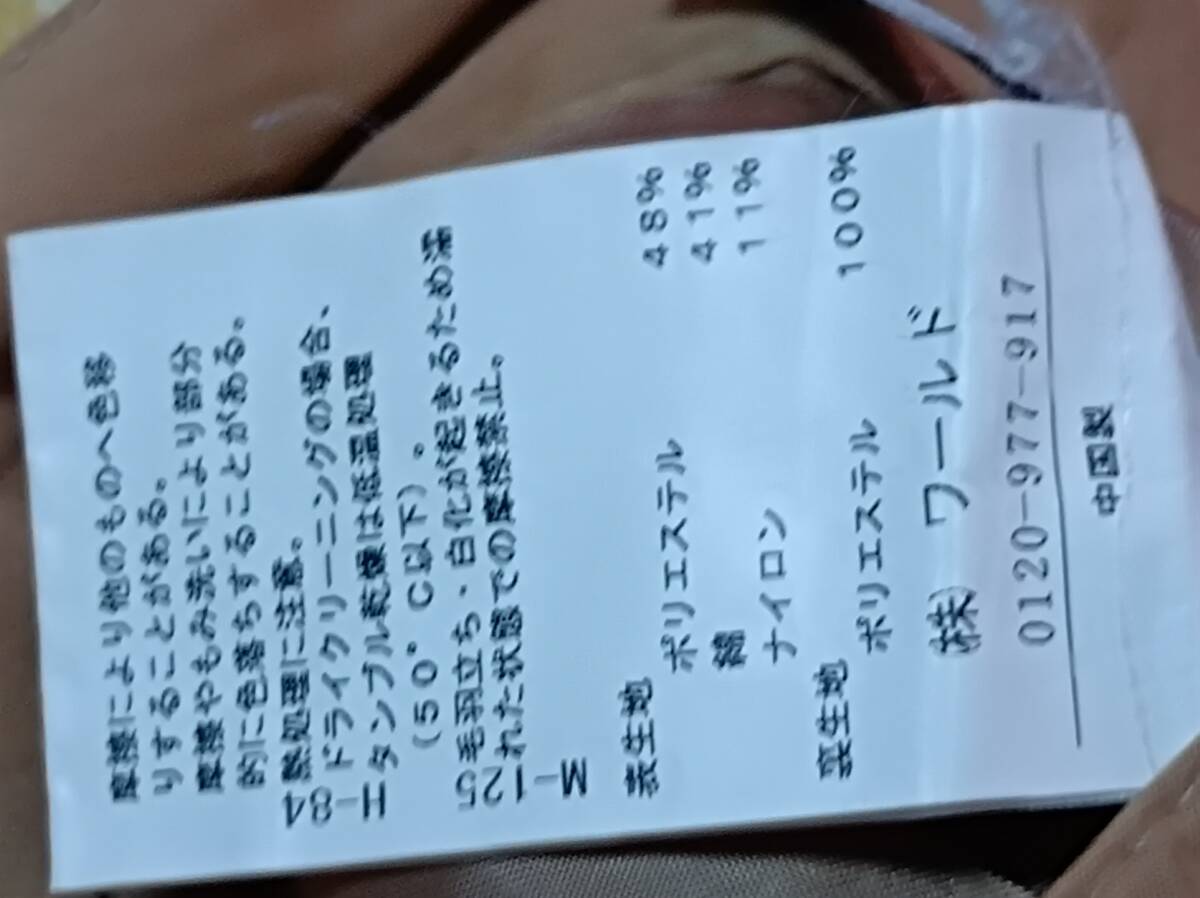 摩擦により他のものへ色移
りすることがある。
摩擦やもみ洗いにより部分
的に色落ちすることがある。
熱処理に注意。
ドライクリーニングの場合、
タンブル乾燥は低温処理
(50°C以下)。
毛羽立ち・白化が起きるため濡
れた状態での摩擦禁止。
H-84
M-125
表生地
ポリエステル 48%
綿 41%
ナイロン 11%
裏生地
ポリエステル 100%
㈱ ワールド
0120-977-917
中国製